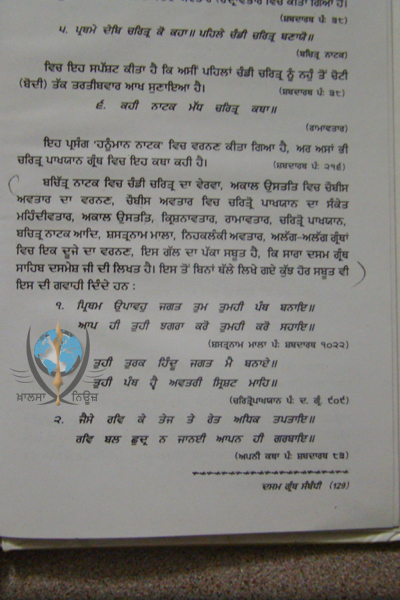 ਵਿਚ ਇਹ ਸਪੱਸ਼ਟ ਕੀਤਾ ਹੈ ਕਿ ਅਸੀਂ ਪਹਿਲਾਂ ਚੰਡੀ ਚਰਿਤ੍ਰ ਨੂੰ ਨਹੁੰ ਤੋਂ ਚੋਟੀ
(ਬੋਦੀ) ਤੱਕ ਤਰਤੀਬਵਾਰ ਆਖ ਸੁਣਾਇਆ ਹੈ। (ਸ਼ਬਦਾਰਥ ਪੰ: ੭੮)
੫. ਪ੍ਰਥਮੇ ਦੇਬਿ ਚਰਿਤ੍ਰ ਕੋ ਕਹਾ॥ ਪਹਿਲੇ ਚੰਡੀ ਚਰਿਤ੍ਰ ਬਣਾਯੋ॥
(ਬਚਿਤ੍ਰ ਨਾਟਕ)
੬. ਕਹੀ ਨਾਟਕ ਮੱਧ ਚਰਿਤ੍ਰ ਕਥਾ॥
(ਰਾਮਾਵਤਾਰ)
ਇਹ ਪ੍ਰਸੰਗ 'ਹਨੂੰਮਾਨ ਨਾਟਕ' ਵਿਚ ਵਰਨਣ ਕੀਤਾ ਗਿਆ ਹੈ, ਅਰ ਅਸਾਂ ਭੀ
ਚਰਿਤ੍ਰ ਪਾਖਯਾਨ ਗ੍ਰੰਥ ਵਿਚ ਇਹ ਕਥਾ ਕਹੀ ਹੈ। (ਸ਼ਬਦਾਰਥ ਪੰ: ੨੧੬)
ਬਚਿੱਤ੍ਰ ਨਾਟਕ ਵਿਚ ਚੰਡੀ ਚਰਿਤ੍ਰ ਦਾ ਵੇਰਵਾ, ਅਕਾਲ ਉਸਤਤਿ ਵਿਚ ਚੌਬੀਸ
ਅਵਤਾਰ ਦਾ ਵਰਨਣ, ਚੌਬੀਸ ਅਵਤਾਰ ਵਿਚ ਚਰਿਤ੍ਰੋ ਪਾਖਯਾਨ ਦਾ ਸੰਕੇਤ
ਮਹਿੰਦੀਵਤਾਰ, ਅਕਾਲ ਉਸਤਤਿ, ਕ੍ਰਿਸ਼ਨਾਵਤਾਰ, ਰਾਮਾਵਤਾਰ, ਚਰਿਤ੍ਰੋ ਪਾਖਯਾਨ,
ਬਚਿਤ੍ਰ ਨਾਟਕ ਆਦਿ, ਸ਼ਸਤ੍ਰਨਾਮ ਮਾਲਾ, ਨਿਹਕਲੰਕੀ ਅਵਤਾਰ, ਅਲੱਗ-ਅਲੱਗ ਗ੍ਰੰਥਾਂ
ਵਿਚ ਇਕ ਦੂਜੇ ਦਾ ਵਰਣਨ, ਇਸ ਗੱਲ ਦਾ ਪੱਕਾ ਸਬੂਤ ਹੈ, ਕਿ ਸਾਰਾ ਦਸਮ ਗ੍ਰੰਥ
ਸਾਹਿਬ ਦਸਮੇਸ਼ ਜੀ ਦੀ ਲਿਖਤ ਹੈ। ਇਸ ਤੋਂ ਬਿਨਾਂ ਥੱਲੇ ਲਿਖੇ ਗਏ ਕੁੱਝ ਹੋਰ ਸਬੂਤ ਵੀ
ਇਸ ਦੀ ਗਵਾਹੀ ਦਿੰਦੇ ਹਨ :
੧. ਪ੍ਰਿਥਮ ਉਪਾਵਹੁ ਜਗਤ ਤੁਮ ਤੁਮਹੀ ਪੰਥ ਬਨਾਇ॥
ਆਪ ਹੀ ਤੁਹੀ ਝਗਰਾ ਕਰੋ ਤੁਮਹੀ ਕਰੋ ਸਹਾਇ॥
(ਸ਼ਸਤ੍ਰਨਾਮ ਮਾਲਾ ਪੰ: ਸ਼ਬਦਾਰਥ ੧੦੨੨)
ਤੁਹੀ ਤੁਰਕ ਹਿੰਦੂ ਜਗਤ ਮੈ ਬਨਾਏ॥
ਤੁਹੀ ਪੰਥ ਹ੍ਵੈ ਅਵਤਰੀ ਸ੍ਰਿਸ਼ਟ ਮਾਹਿ॥
(ਚਰਿਤ੍ਰੋਪਾਖਯਾਨ ਪੰ: ਦ. ਗ੍ਰੰ. ੯੦੯)
ਖ਼ਾਲਸਾ ਨਿਊਜ਼
੨. ਜੈਸੇ ਰਵਿ ਕੇ ਤੇਜ ਤੇ ਰੇਤ ਅਧਿਕ ਤਪਤਾਇ॥
ਰਵਿ ਬਲ ਛੁਦ੍ਰ ਨ ਜਾਨਈ ਆਪਨ ਹੀ ਗਰਬਾਇ॥
(ਅਪਨੀ ਕਥਾ ਪੰ: ਸ਼ਬਦਾਰਥ ੮੩)
ਦਸਮ ਗ੍ਰੰਥ ਸੰਬੰਧੀ (129)